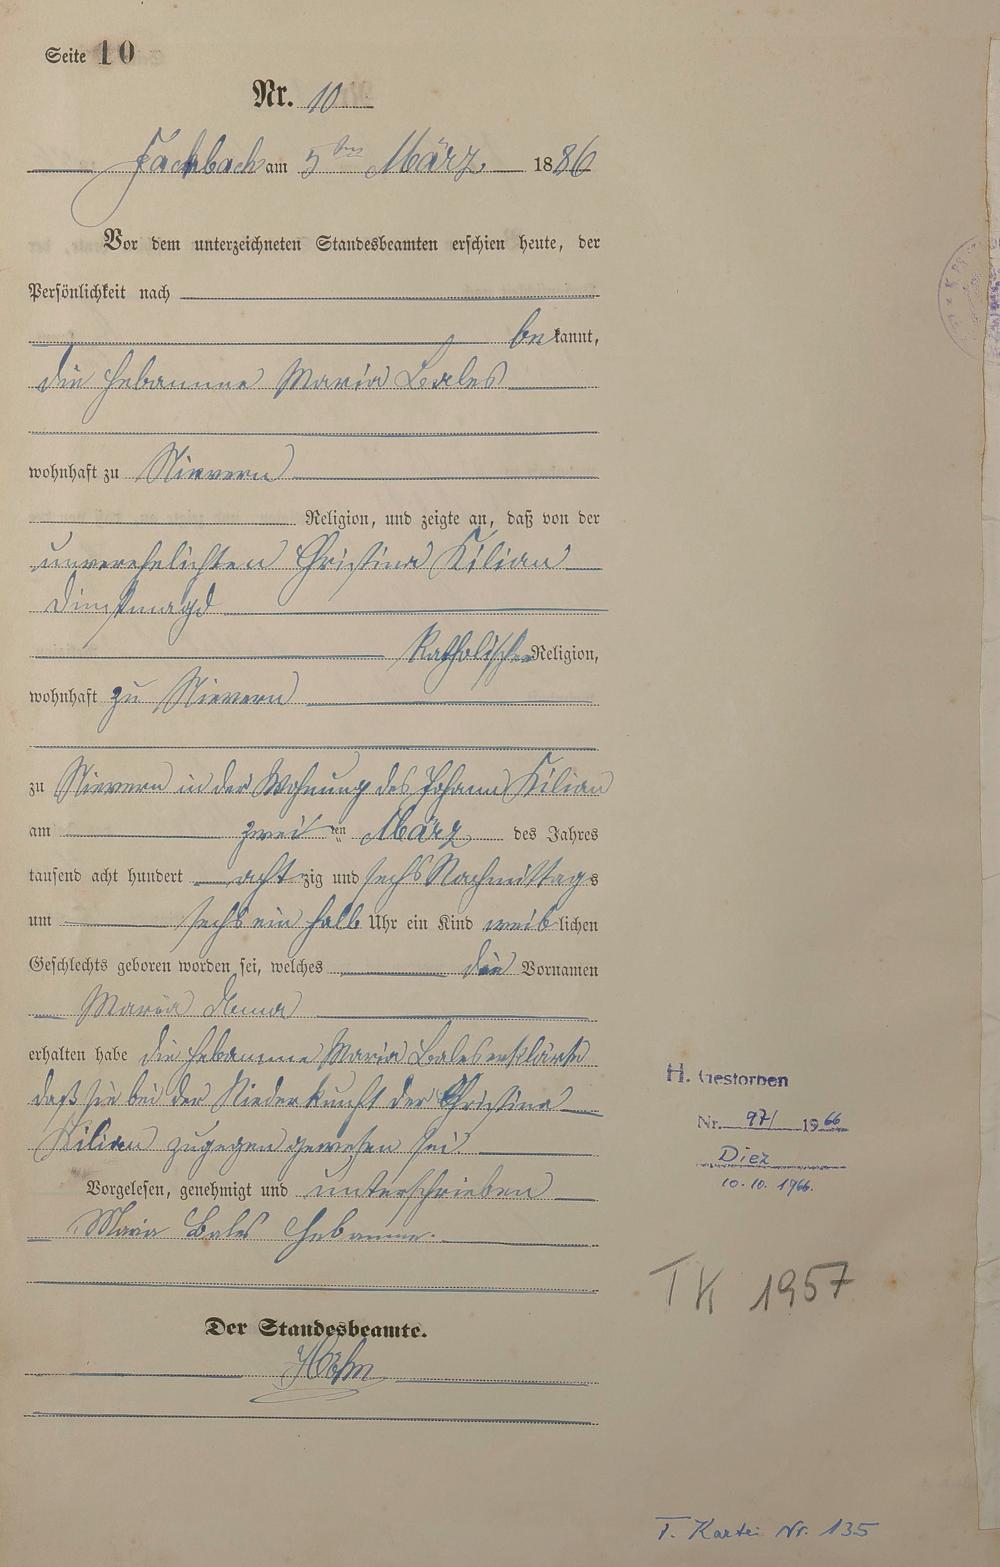 Seite 10
Nr. 10
Fachbach am 5ten März 1886
Vor dem unterzeichneten Standesbeamten erschien heute, der
Persönlichkeit nach
bekannt,
die Hebamme Maria Bales
wohnhaft zu Nievern
Religion, und zeigte an, daß von der
unverehelichten Christina Kilian
Dienstmagd
Katholischer Religion,
wohnhaft zu Nievern
zu Nievern in der Wohnung des Johann Kilian
am zweiten März des Jahres
tausend acht hundert achtzig und sechs Nachmittags
um sechs ein halb Uhr ein Kind weiblichen
Geschlechts geboren worden sei, welches die Vornamen
Maria Anna
erhalten habe die Hebamme Maria Bales erklärte
daß sie bei der Niederkunft der Christina
Kilian zugegen gewesen sei.
Vorgelesen, genehmigt und unterschrieben
Maria Bales Hebamme.
Der Standesbeamte.
H. Gestorben
Nr. 97/1966
Diez
10.10.1966.
TK 1957
T. Kartei Nr. 135